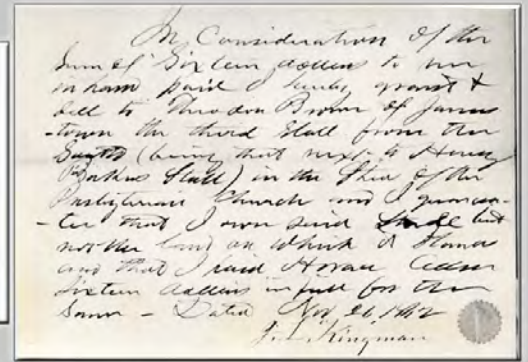 In Consideration of the
Sum of Sixteen dollars to me
in hand paid I hereby grant &
sell to Theodore Brown of James
-town the third Stall from the
South (being that next to Henry
Stall) in the Shed of the
Presbyterian Church and I guaran-
-tee that I own said but
not the land on which it Stands
and that I paid Horace Allen
Sixteen dollars in full for the
Same - Dated Nov 26
Kingman